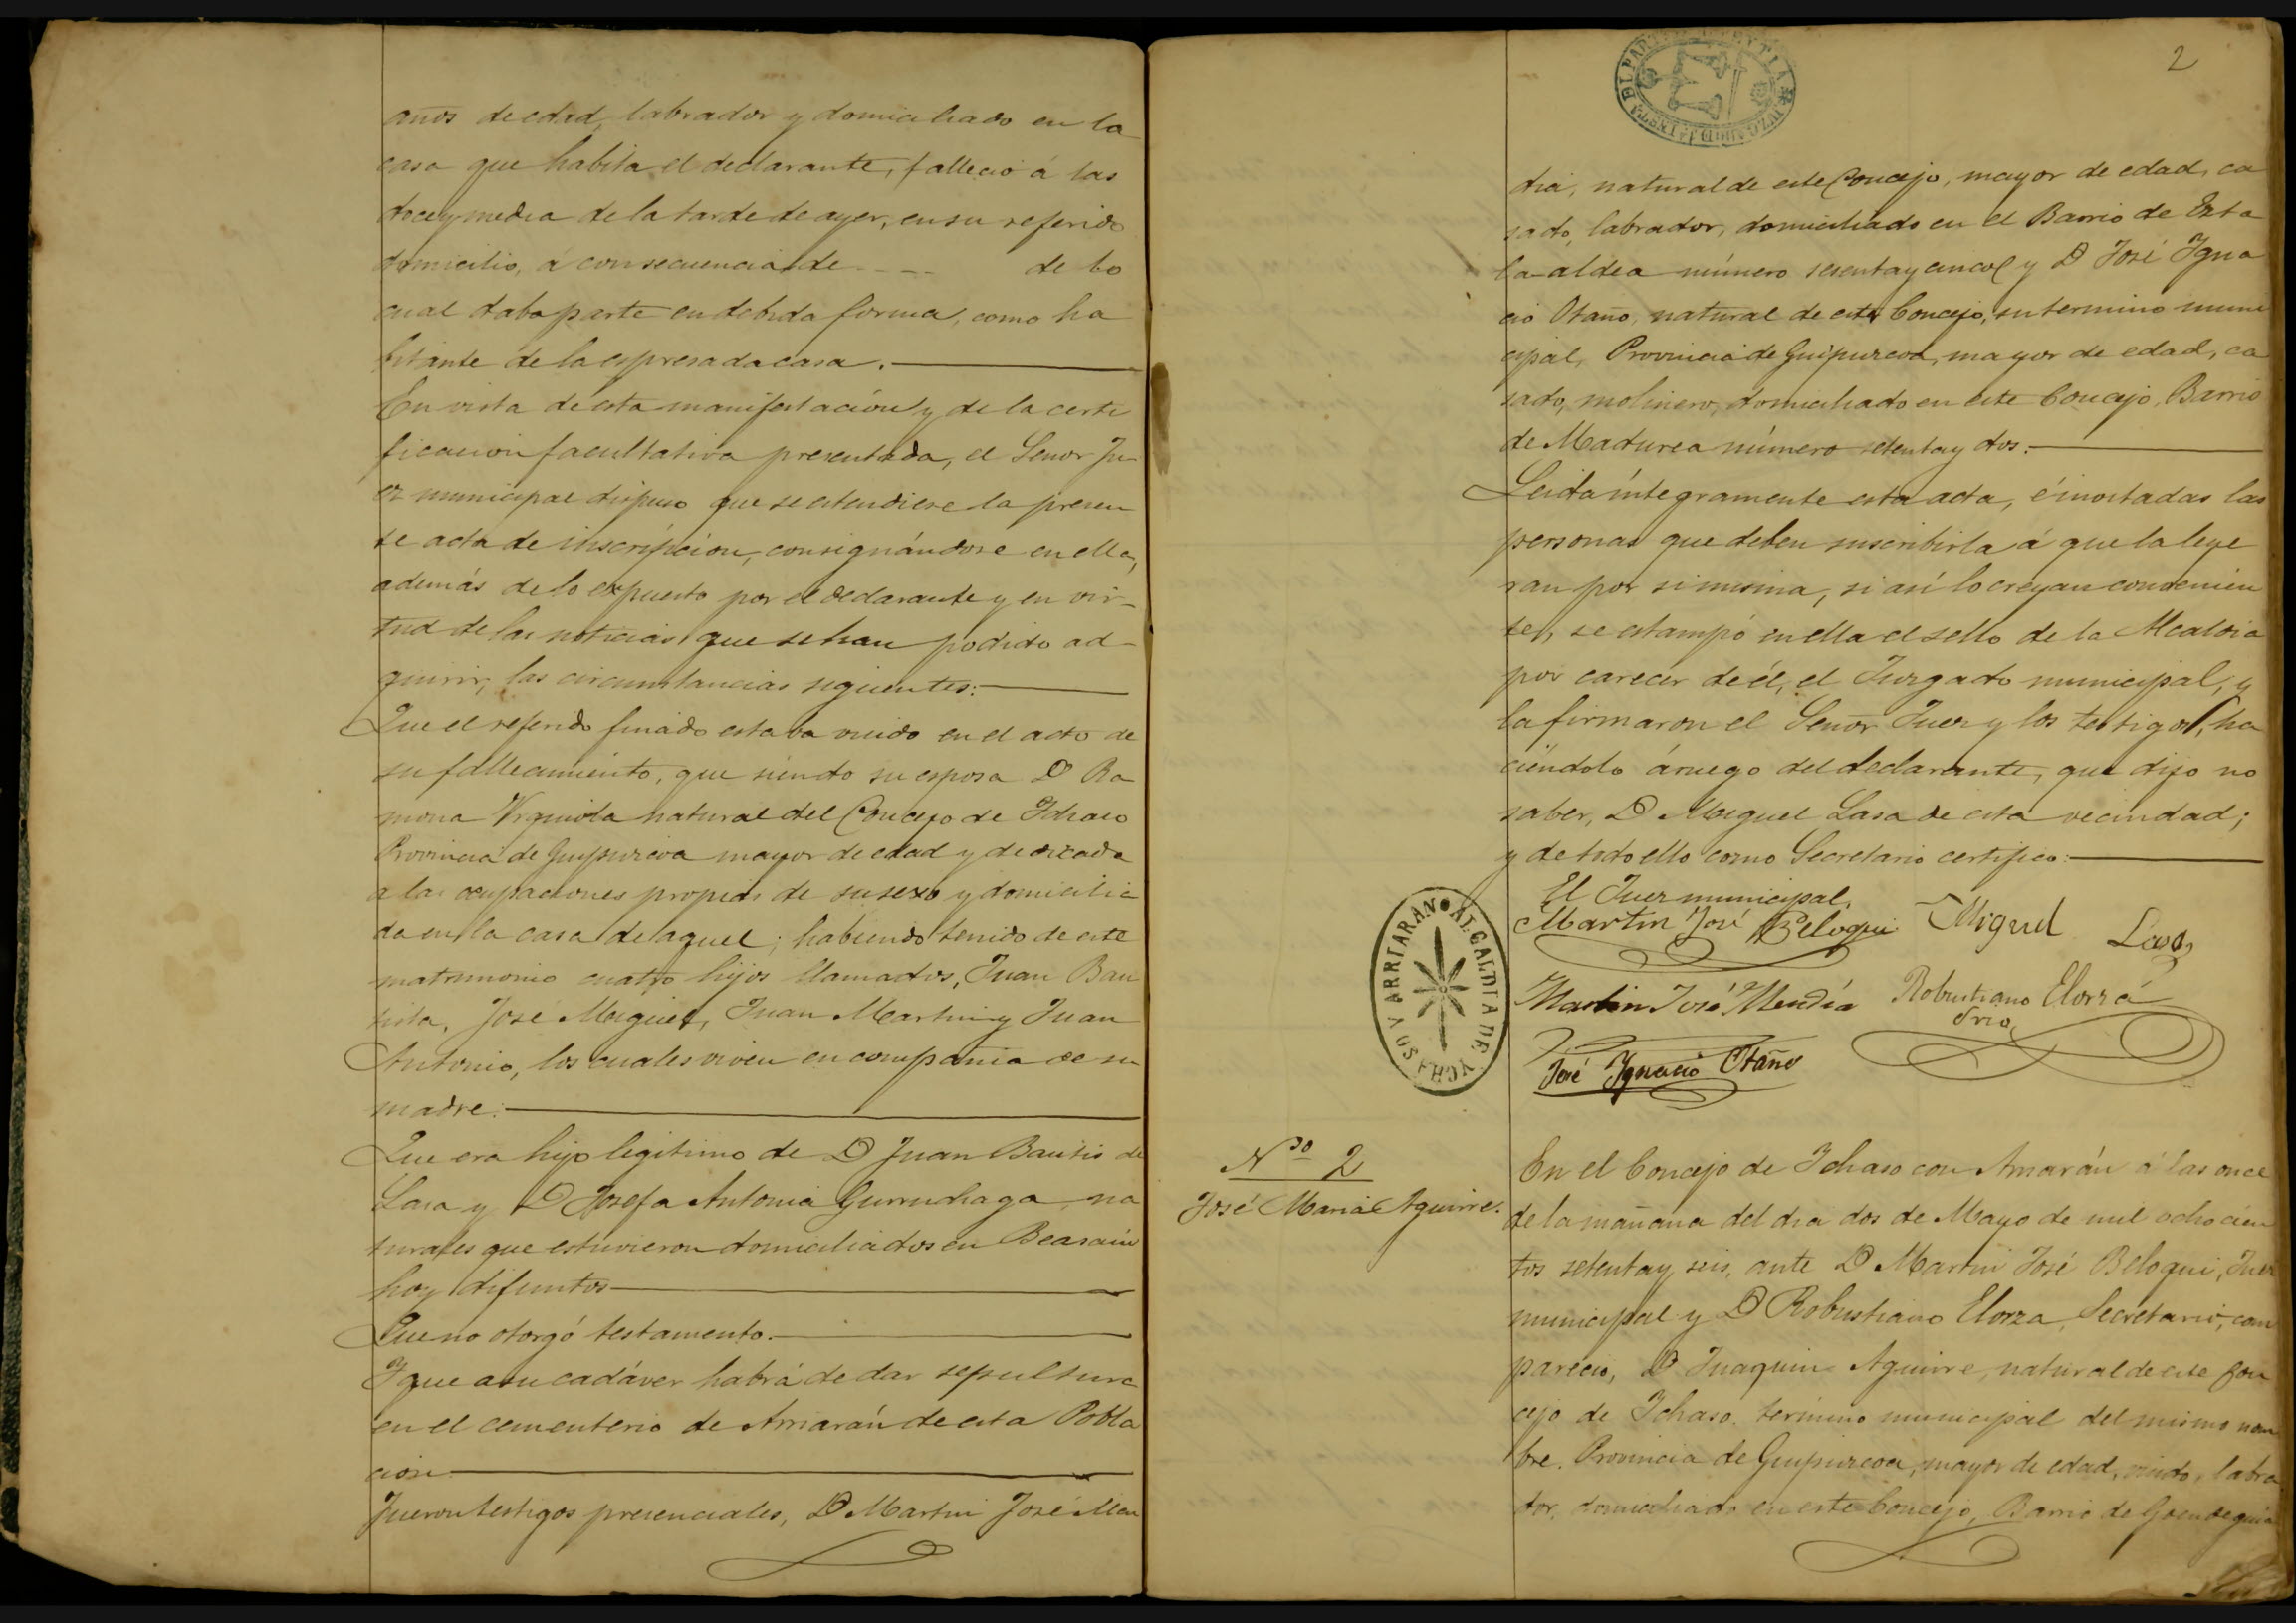 años de edad, labrador y domiciliado en la
casa que habita el declarante, falleció á las
doce y media de la tarde de ayer, en su referido
domicilio, á consecuencia de ---- de lo
cual daba parte en debida forma, como ha
bitante de la espresada casa.
En vista de esta manifestación y de la certi
ficacion facultativa presentada, el Señor Ju-
ez municipal dispuso que se estendiese la presen
te acta de inscripcion, consignándose en ella,
además de lo expuesto por el declarante y en vir-
tud de las noticias que se han podido ad-
quirir, las circunstancias siguientes:
Que el referido finado estaba unido en el acto de
su fallecimiento, que siendo su esposa Dª Ra
mona Urquiola natural del Concejo de Ichaso
Provincia de Guipuzcoa mayor de edad y dedicada
a las ocupaciones propias de su sexo y domicilia
da en la casa de aquel; habiendo tenido de este
matrimonio cuatro hijos llamados, Juan Bau
tista, José Miguel, Juan Martin y Juan
Antonio, los cuales viven en compañia de su
madre:
Que era hijo legitimo de D Juan Bautis de
Lasa y Dª Josefa Antonia Gurruchaga, na
turales que estuvieron domiciliados en Beasain
hoy difuntos
Que no otorgó testamento.
Y que a su cadáver habrá de dar sepultura
en el cementerio de Arriarán de esta Pobla
cion
Fueron testigos presenciales, D Martin José Men
2
dia, natural de este Concejo, mayor de edad, ca
sado, labrador, domiciliado en el Barrio de
la aldea número sesenta y cinco y D José Igna
cio Otaño, natural de este Concejo, su termino muni
cipal, Provincia de Guipuzcoa, mayor de edad, ca
sado, molinero, domiciliado en este Concejo, Barrio
de Madurea número setenta y dos.
Leida íntegramente esta acta, é inostadas las
personas que deben suscribirla á que la leye
ran por si misma, si así lo creyan convenien
te, se estampó en ella el sello de la Alcaldia
por carecer de él, el Juzgado municipal, y
la firmaron el Señor Juez y los testigos, ha
ciéndolo á ruego del declarante, que dijo no
saber, D Miguel Lasa de esta vecindad;
y de todo ello como Secretario certifico:
El Juez municipal,
Martin José Beloqui Miguel Lasa
Martin José Mendía Robustiano Elorza
Srio
José Ygnacio Otaño
ALCALDIA DE YCHASO Y ARRIARAN
Nº 2
José Maria Aguirre.
En el Concejo de Ichaso con Arriarán á las once
de la mañana del dia dos de Mayo de mil ochocien
tos setenta y seis, ante D Martin José Beloqui, Juez
municipal y D Robustiano Elorza, Secretario, com
pareció, D Juaquin Aguirre, natural de este Con
cejo de Ichaso. termino municipal del mismo nom
bre. Provincia de Guipuzcoa, mayor de edad, viudo, labra
dor, domiciliado en este Concejo, Barrio de